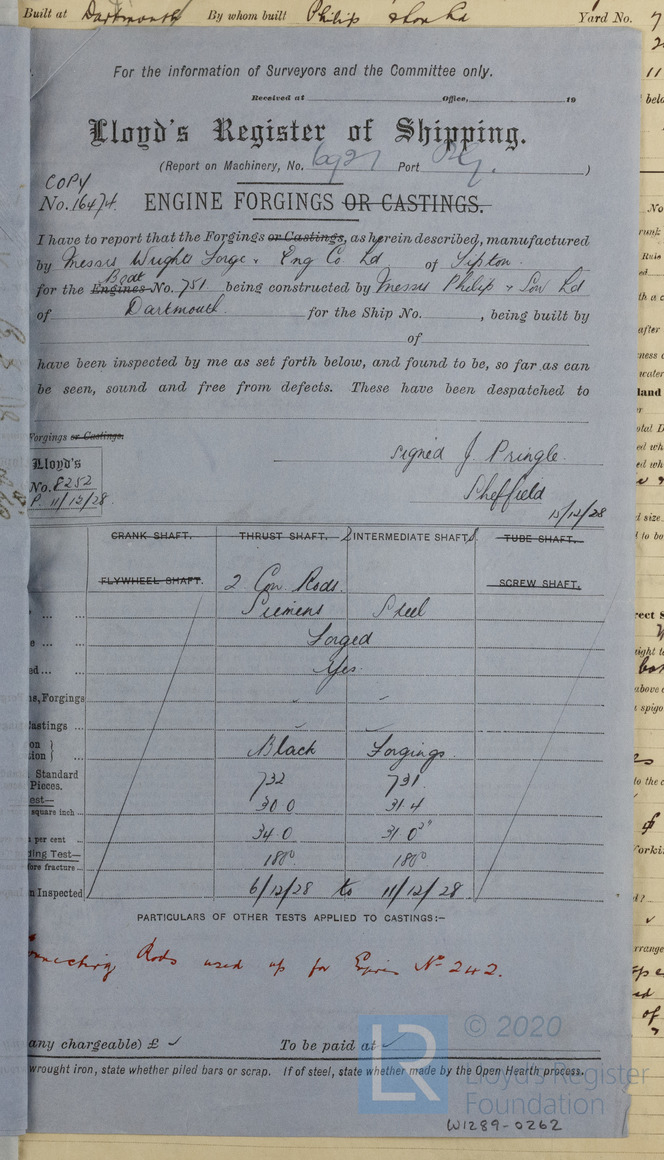 Built at Dartmouth By whom built Philip & Son Ld Yard No. 7
For the information of Surveyors and the Committee only.
Received at Office, 19
Lloyd's Register of Shipping.
(Report on Machinery, No. 6927 Port Ply. )
COPY
No. 16474. ENGINE FORGINGS OR CASTINGS.
I have to report that the Forgings or Castings, as herein described, manufactured
by Messrs Wrights Forge & Eng Co. Ld of Tipton.
Boat
for the Engines No. 751 being constructed by Messrs Philip & Son Ld
of Dartmouth. for the Ship No. , being built by
of
have been inspected by me as set forth below, and found to be, so far as can
be seen, sound and free from defects. These have been despatched to
Forgings or Castings.
Lloyd's
No. 8252
P. 11/12/28.
signed J. Pringle.
Sheffield
15/12/28
CRANK SHAFT. THRUST SHAFT. 2 INTERMEDIATE SHAFTS. TUBE SHAFT.
FLYWHEEL SHAFT. 2 Con Rods. SCREW SHAFT.
... ... Siemens Steel
e ... ... Forged
ed ... ... Yes.
ns, Forgings
Castings ...
on }
tion } Black Forgings.
Standard
Pieces. 732 731
est—
square inch ... 30 0 31 4
per cent ... 34 0 31 0
ding Test—
fore fracture ... 180° 180°
n Inspected 6/12/28 to 11/12/28
PARTICULARS OF OTHER TESTS APPLIED TO CASTINGS:—
onnecting Rods used up for Engine No 242.
any chargeable) £ To be paid at
wrought iron, state whether piled bars or scrap. If of steel, state whether made by the Open Hearth process.
© 2020
LR
Lloyd's Register
Foundation
W1289-0262